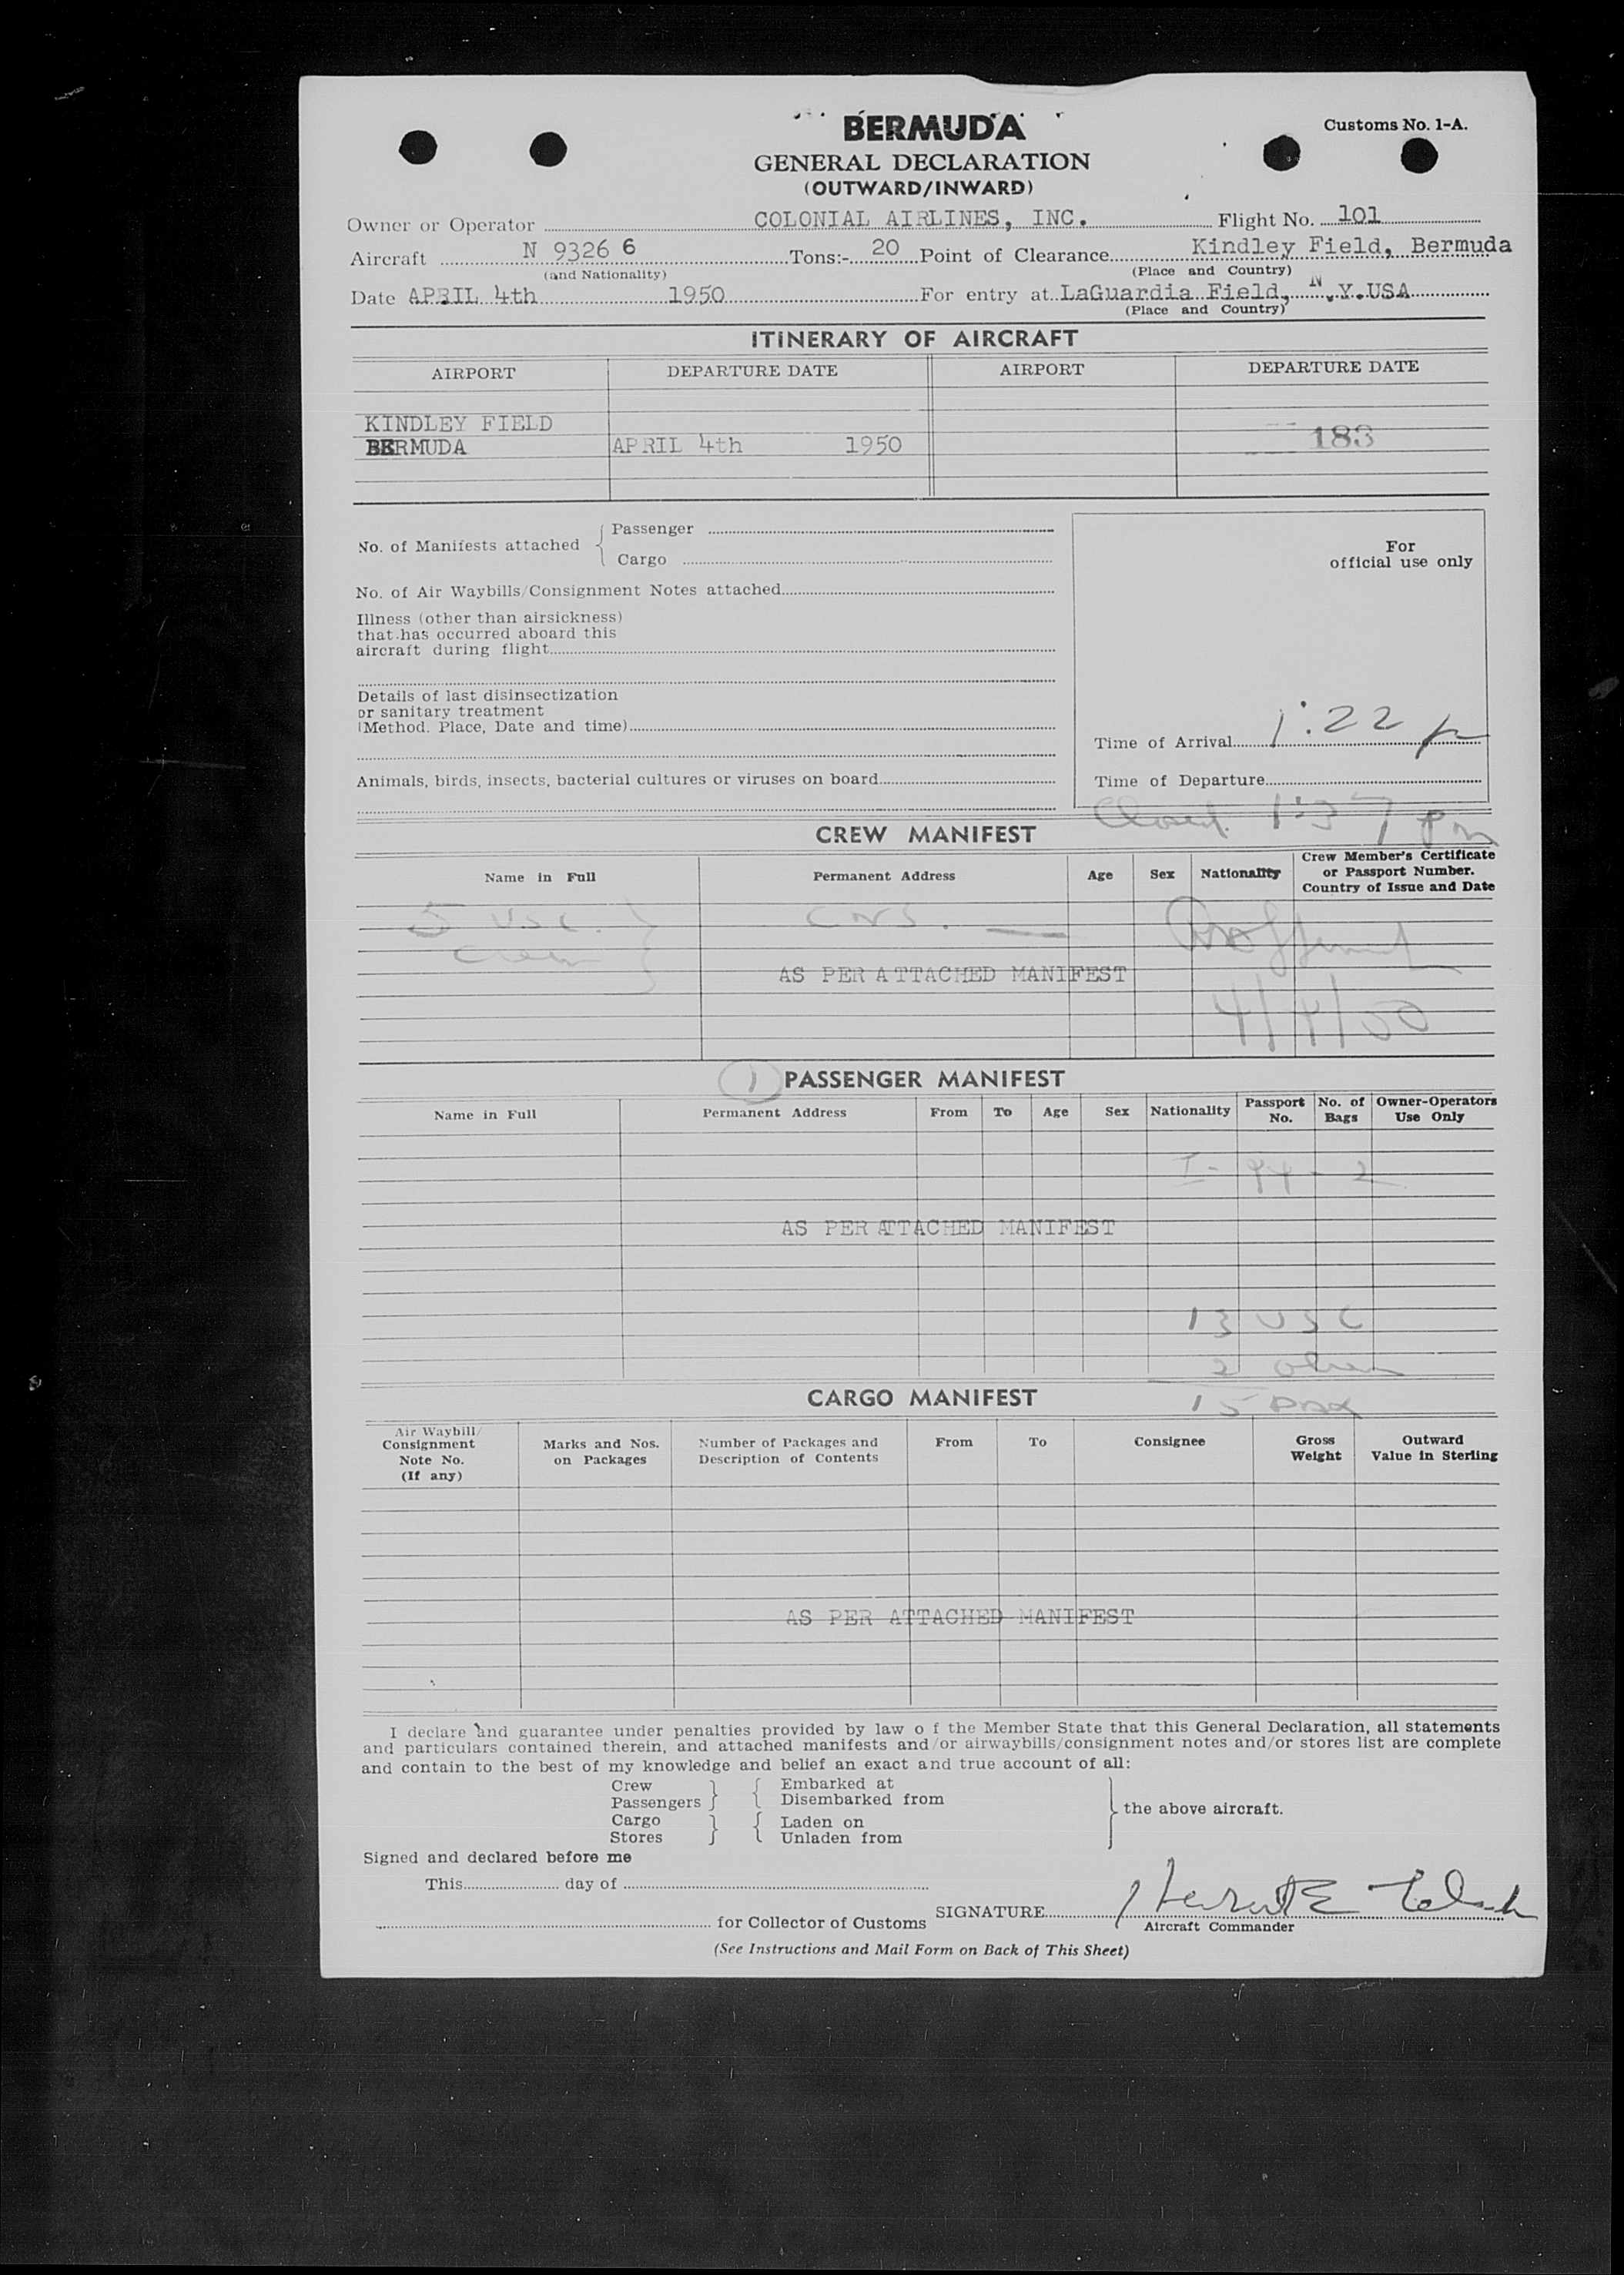 BERMUDA
Customs No. 1-A.
GENERAL DECLARATION
(OUTWARD/INWARD)
Owner or Operator COLONIAL AIRLINES, INC. Flight No. 101
Aircraft N 9326 6 Tons:- 20 Point of Clearance Kindley Field, Bermuda
(and Nationality) (Place and Country)
Date APRIL 4th 1950 For entry at LaGuardia Field, N.Y.USA
(Place and Country)
ITINERARY OF AIRCRAFT
AIRPORT DEPARTURE DATE AIRPORT DEPARTURE DATE
KINDLEY FIELD
BERMUDA APRIL 4th 1950 183
No. of Manifests attached
Passenger
Cargo
For
official use only
No. of Air Waybills/Consignment Notes attached
Illness (other than airsickness)
that has occurred aboard this
aircraft during flight
Details of last disinsectization
or sanitary treatment
(Method. Place, Date and time)
Time of Arrival 1:22 p
Animals, birds, insects, bacterial cultures or viruses on board
Time of Departure
Closed 1:37 pm
CREW MANIFEST
Name in Full Permanent Address Age Sex Nationality Crew Member's Certificate
or Passport Number.
Country of Issue and Date
5 USC.
Crew
AS PER ATTACHED MANIFEST
4/4/50
1 PASSENGER MANIFEST
Name in Full Permanent Address From To Age Sex Nationality Passport No. No. of Bags Owner-Operators Use Only
I-94-2
AS PER ATTACHED MANIFEST
13 USC
2 other
15 pax
CARGO MANIFEST
Air Waybill/
Consignment
Note No.
(If any)
Marks and Nos.
on Packages
Number of Packages and
Description of Contents
From To Consignee
Gross
Weight
Outward
Value in Sterling
AS PER ATTACHED MANIFEST
I declare and guarantee under penalties provided by law o f the Member State that this General Declaration, all statements
and particulars contained therein, and attached manifests and/or airwaybills/consignment notes and/or stores list are complete
and contain to the best of my knowledge and belief an exact and true account of all:
Crew Embarked at
Passengers Disembarked from
the above aircraft.
Cargo Laden on
Stores Unladen from
Signed and declared before me
This day of
SIGNATURE
for Collector of Customs
Aircraft Commander
(See Instructions and Mail Form on Back of This Sheet)